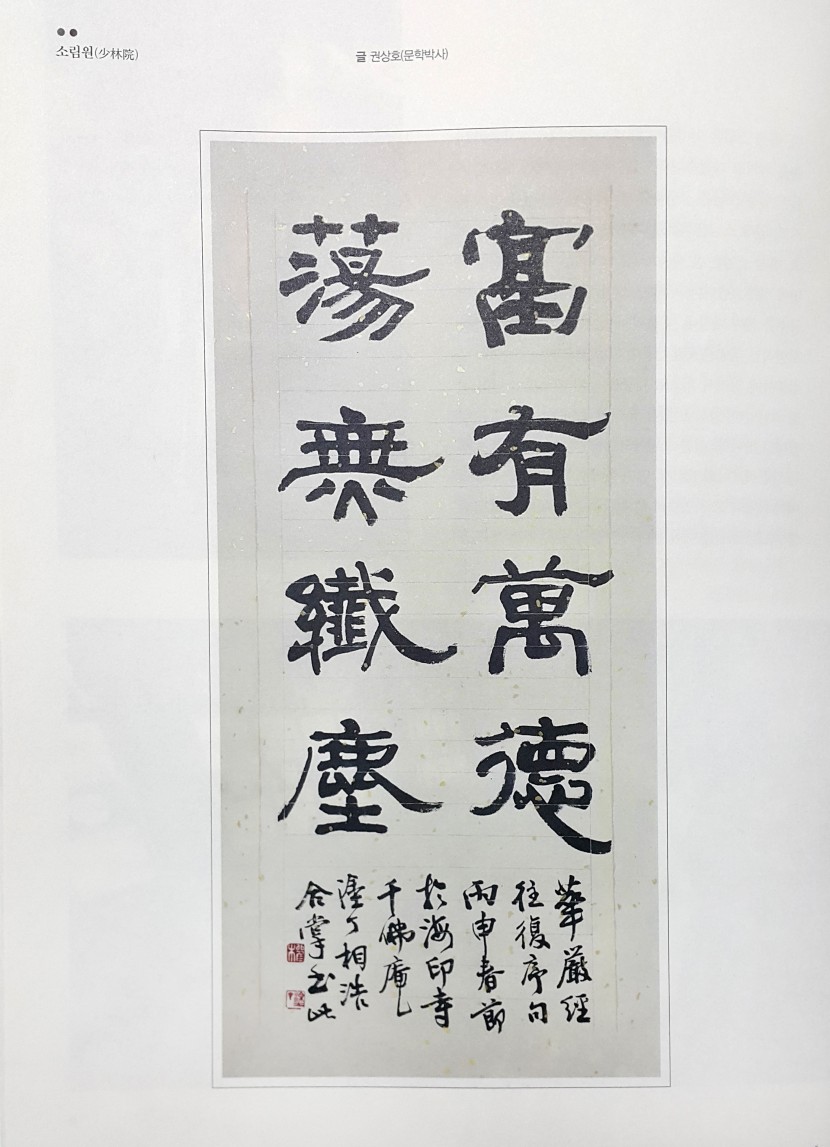 소림원(少林院)
글 권상호(문학박사)
富有萬德
蕩無纖塵
華嚴經
往復序句
丙申春節
於海印寺
千佛庵
塗丁相浩
合掌書此